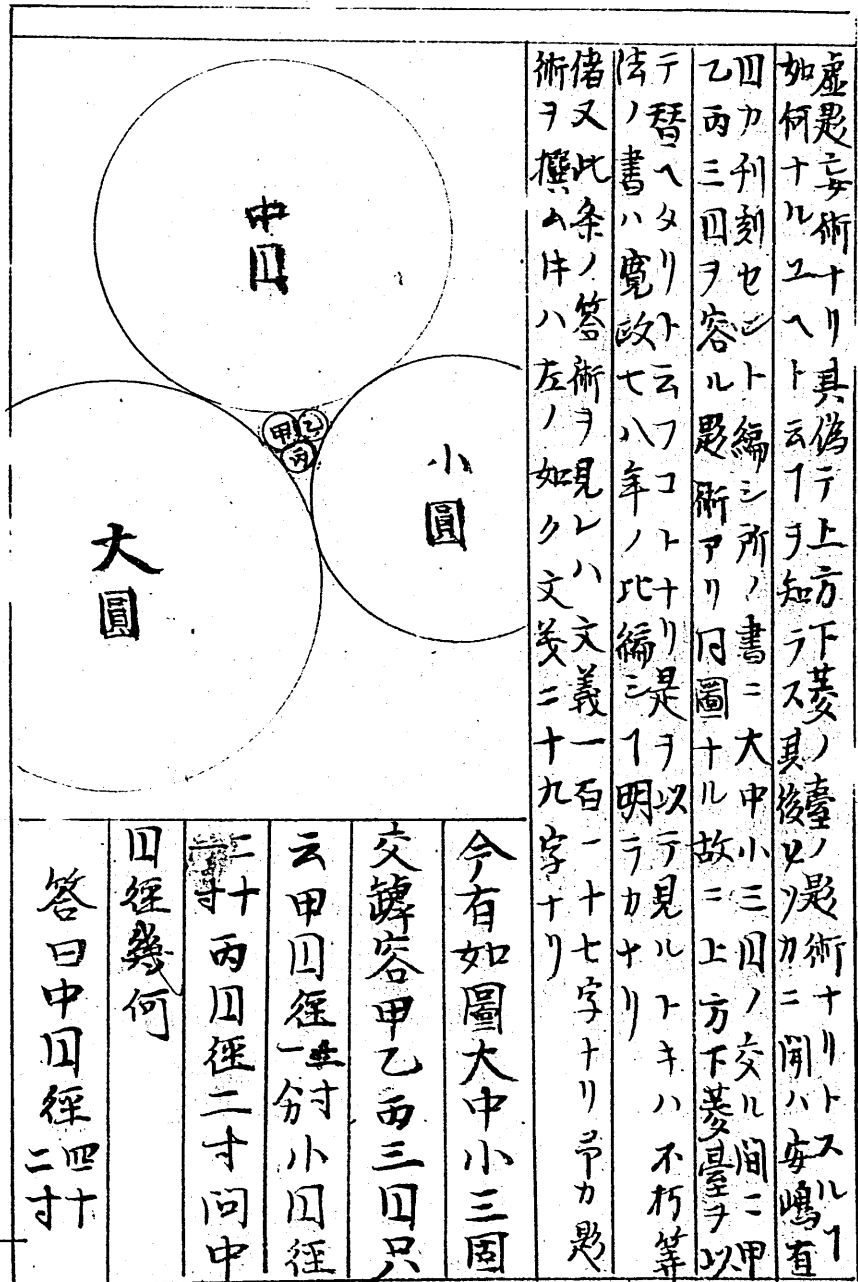 虚題妄術ナリ其偽テ上方下菱ノ臺ノ題術ナリトスルヿ
如何ナルユヘト云ヿヲ知ラス其後ヒソカニ聞ハ安嶋有
四カ刊刻セント編シ所ノ書ニ大中小三囗ノ交ル間ニ甲
乙丙三囗ヲ容ル題術アリ同圖ナル故ニ上方下菱臺ヲ以
テ替ヘタリト云フコトナリ是ヲ以テ見ルトキハ不朽等
法ノ書ハ寛政七八年ノ比編シヿ明ラカナリ
偖又此条ノ答術ヲ見レハ文義一百一十七字ナリ予カ題
術ヲ撰ム𪜈ハ左ノ如ク文義二十九字ナリ
中囗
甲
乙
丙
小圓
大圓
今有如圖大中小三圓
交罅容甲乙丙三囗只
云甲囗徑寸分小囗徑
二十寸丙囗徑二寸問中
囗徑幾何
答曰中囗徑四十二寸